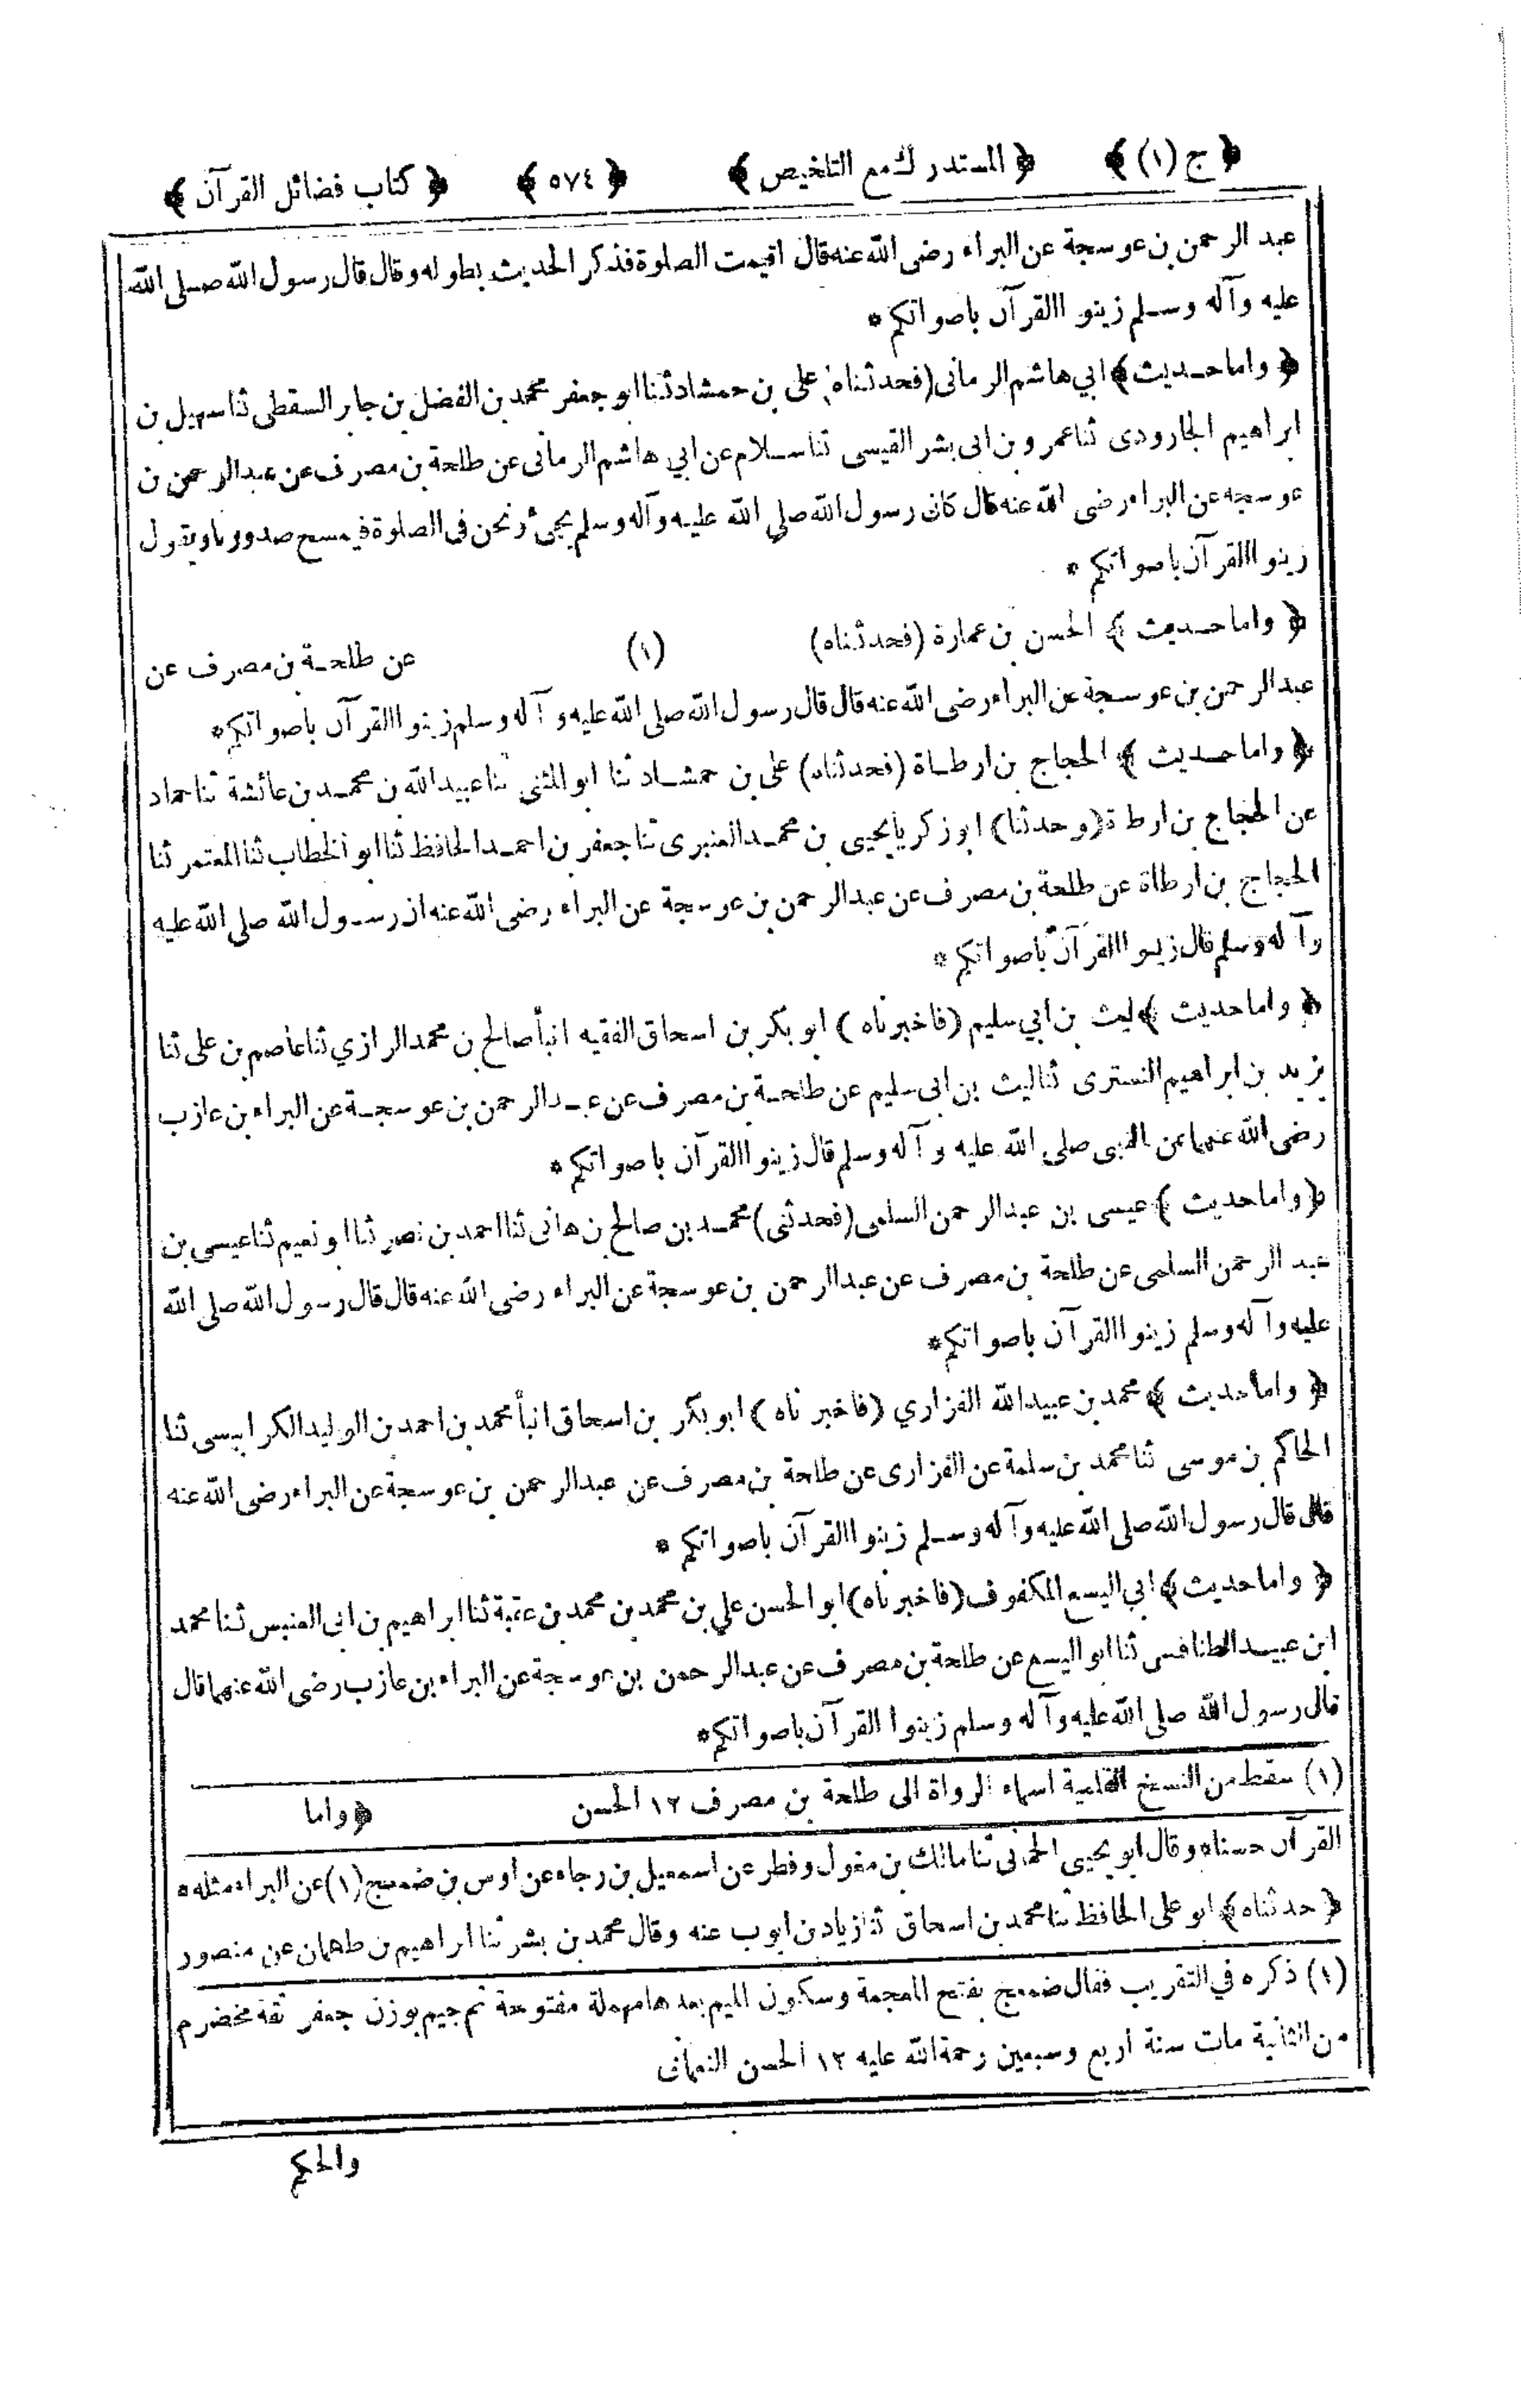 ﴿ ج (١) ﴾ ﴿ المستدرك مع التلخيص ﴾ ﴿ ٥٧٤ ﴾ ﴿ كتاب فضائل القرآن ﴾
عبد الرحمن بن عوسجة عن البراء رضى الله عنه قال اقيمت الصلوة فذكر الحديث بطوله وقال قال رسول الله صلى الله
عليه وآله وسلم زينوا القرآن باصواتكم *
﴿ واما حديث ﴾ ابي هاشم الرمانى (فحدثناه) على بن حمشاد ثنا ابو جعفر محمد بن الفضل بن جابر السقطى ثنا سهيل بن
ابراهيم الجارودى ثنا عمرو بن ابى بشر القيسى ثنا سلام عن ابي هاشم الرمانى عن طلحة بن مصرف عن عبد الرحمن بن
عوسجة عن البراء رضى الله عنه قال كان رسول الله صلى الله عليه وآله وسلم يجئ ونحن فى الصلوة فيمسح صدورنا ويقول
زينوا القرآن باصواتكم *
﴿ واما حديث ﴾ الحسن بن عمارة (فحدثناه) (١) عن طلحة بن مصرف عن
عبد الرحمن بن عوسجة عن البراء رضى الله عنه قال قال رسول الله صلى الله عليه وآله وسلم زينوا القرآن باصواتكم *
﴿ واما حديث ﴾ الحجاج بن ارطاة (فحدثناه) على بن حمشاد ثنا ابو المثنى ثنا عبيد الله بن محمد بن عائشة ثنا حماد
عن الحجاج بن ارطاة (وحدثنا) ابو زكريا يحيى بن محمد العنبرى ثنا جعفر بن احمد الحافظ ثنا ابو الخطاب ثنا المعتمر ثنا
الحجاج بن ارطاة عن طلحة بن مصرف عن عبد الرحمن بن عوسجة عن البراء رضى الله عنه ان رسول الله صلى الله عليه
وآله وسلم قال زينوا القرآن باصواتكم *
﴿ واما حديث ﴾ ليث بن ابي سليم (فاخبرناه) ابو بكر بن اسحاق الفقيه انبأ صالح بن محمد الرازي ثنا عاصم بن على ثنا
يزيد بن ابراهيم التسترى ثنا ليث بن ابى سليم عن طلحة بن مصرف عن عبد الرحمن بن عوسجة عن البراء بن عازب
رضى الله عنهما عن النبى صلى الله عليه وآله وسلم قال زينوا القرآن باصواتكم *
﴿ واما حديث ﴾ عيسى بن عبد الرحمن السلمى (فحدثنى) محمد بن صالح بن هانى ثنا احمد بن نصر ثنا ابو نعيم ثنا عيسى بن
عبد الرحمن السلمى عن طلحة بن مصرف عن عبد الرحمن بن عوسجة عن البراء رضى الله عنه قال قال رسول الله صلى الله
عليه وآله وسلم زينوا القرآن باصواتكم *
﴿ واما حديث ﴾ محمد بن عبيد الله الفزاري (فاخبرناه) ابو بكر بن اسحاق انبأ محمد بن احمد بن الوليد الكرابيسى ثنا
الحاكم بن موسى ثنا محمد بن سلمة عن الفزارى عن طلحة بن مصرف عن عبد الرحمن بن عوسجة عن البراء رضى الله عنه
قال قال رسول الله صلى الله عليه وآله وسلم زينوا القرآن باصواتكم *
﴿ واما حديث ﴾ ابي اليسع المكفوف (فاخبرناه) ابو الحسن علي بن محمد بن محمد بن عقبة ثنا ابراهيم بن ابى العنبس ثنا محمد
ابن عبيد الطنافسى ثنا ابو اليسع عن طلحة بن مصرف عن عبد الرحمن بن عوسجة عن البراء بن عازب رضى الله عنهما قال
قال رسول الله صلى الله عليه وآله وسلم زينوا القرآن باصواتكم *
(١) سقط من النسخ القلمية اسماء الرواة الى طلحة بن مصرف ١٢ الحسن ﴿ واما
القرآن حسنا * وقال ابو يحيى الحمانى ثنا مالك بن مغول وفطر عن اسمعيل بن رجاء عن اوس بن ضمعج (١) عن البراء مثله *
﴿ حدثناه ﴾ ابو على الحافظ ثنا محمد بن اسحاق ثنا زياد بن ايوب عنه وقال محمد بن بشر ثنا ابراهيم بن طهمان عن منصور
(١) ذكره في التقريب فقال ضمعج بفتح المعجمة وسكون الميم بعدها مهملة مفتوحة ثم جيم بوزن جعفر ثقة مخضرم
من الثانية مات سنة اربع وسبعين رحمة الله عليه ١٢ الحسن النعمانى
والحكم